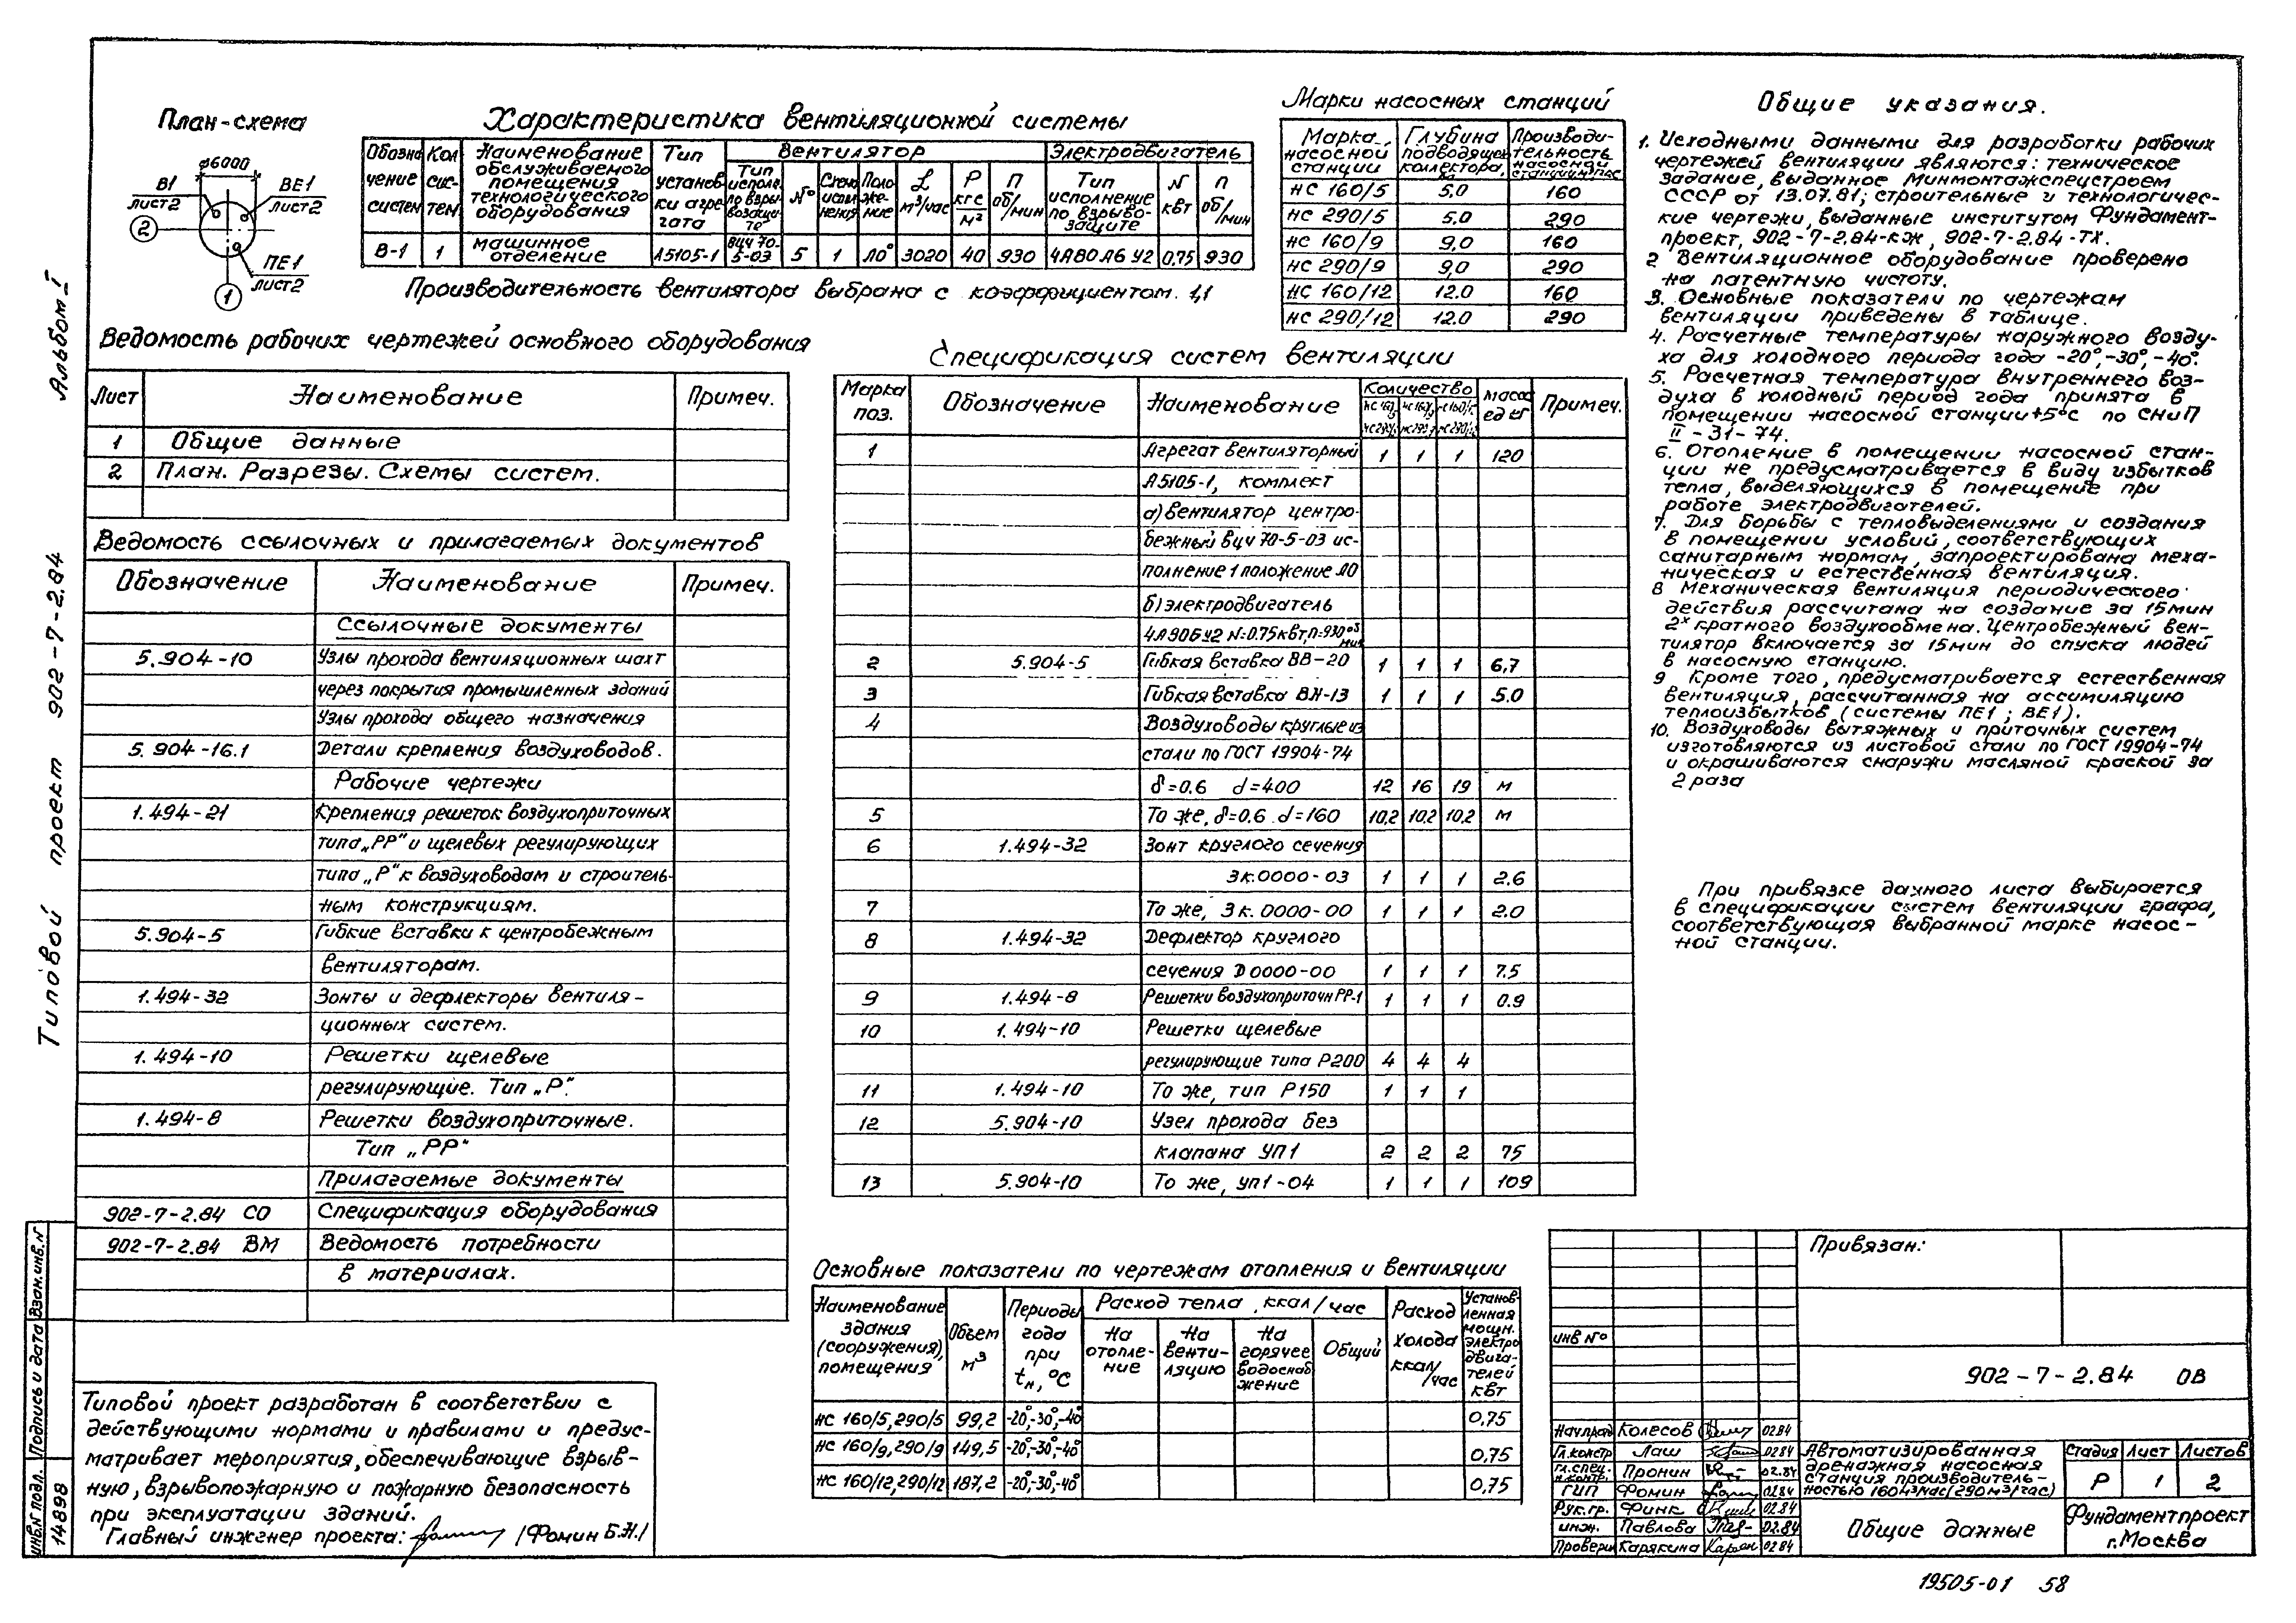 План-схема
ø6000
В1
лист2
ВЕ1
лист2
2
ПЕ1
лист2
1
Характеристика вентиляционной системы
Обозначение систем | Кол систем | Наименование обслуживаемого помещения технологического оборудования | Тип установки агрегата | Вентилятор | Электродвигатель
Тип исполне. по взрывозащите | № | Схема исполнения | Положение | L м³/час | Р кгс/м² | П об/мин | Тип исполнение по взрывозащите | N квт | п об/мин
В-1 | 1 | машинное отделение | А5105-1 | ВЦЧ 70-5-03 | 5 | 1 | Л0° | 3020 | 40 | 930 | 4А80А6 У2 | 0,75 | 930
Производительность вентилятора выбрана с коэффициентом 1,1
Марки насосных станций
Марка насосной станции | Глубина подводящего коллектора, м | Производительность насосной станции м³/час
НС 160/5 | 5,0 | 160
НС 290/5 | 5.0 | 290
НС 160/9 | 9,0 | 160
НС 290/9 | 9,0 | 290
НС 160/12 | 12.0 | 160
НС 290/12 | 12.0 | 290
Общие указания.
1. Исходными данными для разработки рабочих
чертежей вентиляции являются: техническое
задание, выданное Минмонтажспецстроем
СССР от 13.07.81; строительные и технологичес-
кие чертежи, выданные институтом Фундамент-
проект, 902-7-2.84-КЖ, 902-7-2.84-ТХ.
2 Вентиляционное оборудование проверено
на патентную чистоту.
3. Основные показатели по чертежам
вентиляции приведены в таблице.
4. Расчетные температуры наружного возду-
ха для холодного периода года -20°, -30°, -40°.
5. Расчетная температура внутреннего воз-
духа в холодный период года принята в
помещении насосной станции +5°с по СНиП
II-31-74.
6. Отопление в помещении насосной стан-
ции не предусматривается в виду избытков
тепла, выделяющихся в помещение при
работе электродвигателей.
7. Для борьбы с тепловыделениями и создания
в помещении условий, соответствующих
санитарным нормам, запроектирована меха-
ническая и естественная вентиляция.
8 Механическая вентиляция периодического
действия рассчитана на создание за 15мин
2х кратного воздухообмена. Центробежный вен-
тилятор включается за 15мин до спуска людей
в насосную станцию.
9 Кроме того, предусматривается естественная
вентиляция, рассчитанная на ассимиляцию
теплоизбытков (системы ПЕ1; ВЕ1).
10. Воздуховоды вытяжных и приточных систем
изготовляются из листовой стали по ГОСТ 19904-74
и окрашиваются снаружи масляной краской за
2 раза
При привязке данного листа выбирается
в спецификации систем вентиляции графа,
соответствующая выбранной марке насос-
ной станции.
Ведомость рабочих чертежей основного оборудования
Лист | Наименование | Примеч.
1 | Общие данные
2 | План. Разрезы. Схемы систем.
Ведомость ссылочных и прилагаемых документов
Обозначение | Наименование | Примеч.
Ссылочные документы
5.904-10 | Узлы прохода вентиляционных шахт
через покрытия промышленных зданий
Узлы прохода общего назначения
5.904-16.1 | Детали крепления воздуховодов.
Рабочие чертежи
1.494-21 | Крепления решеток воздухоприточных
типа „РР“ и щелевых регулирующих
типа „Р“ к воздуховодам и строитель-
ным конструкциям.
5.904-5 | Гибкие вставки к центробежным
вентиляторам.
1.494-32 | Зонты и дефлекторы вентиля-
ционных систем.
1.494-10 | Решетки щелевые
регулирующие. Тип „Р“.
1.494-8 | Решетки воздухоприточные.
Тип „РР“
Прилагаемые документы
902-7-2.84 СО | Спецификация оборудования
902-7-2.84 ВМ | Ведомость потребности
в материалах.
Спецификация систем вентиляции
Марка поз. | Обозначение | Наименование | Количество | масса ед кг | Примеч.
1 | Агрегат вентиляторный | 1 | 1 | 1 | 120
А5105-1, комплект
а) вентилятор центро-
бежный ВЦЧ 70-5-03 ис-
полнение 1 положение Л0
б) электродвигатель
4А90Б У2 N=0.75квт, п=930 об/мин
2 | 5.904-5 | Гибкая вставка ВВ-20 | 1 | 1 | 1 | 6,7
3 | Гибкая вставка ВН-13 | 1 | 1 | 1 | 5.0
4 | Воздуховоды круглые из
стали по ГОСТ 19904-74
δ=0.6 d=400 | 12 | 16 | 19 | м
5 | То же, δ=0.6 d=160 | 10,2 | 10,2 | 10,2 | м
6 | 1.494-32 | Зонт круглого сечения
Зк.0000-03 | 1 | 1 | 1 | 2.6
7 | То же, Зк.0000-00 | 1 | 1 | 1 | 2.0
8 | 1.494-32 | Дефлектор круглого
сечения Д 0000-00 | 1 | 1 | 1 | 7.5
9 | 1.494-8 | Решетки воздухоприточн РР-1 | 1 | 1 | 1 | 0.9
10 | 1.494-10 | Решетки щелевые
регулирующие типа Р200 | 4 | 4 | 4
11 | 1.494-10 | То же, тип Р150 | 1 | 1 | 1
12 | 5.904-10 | Узел прохода без
клапана УП1 | 2 | 2 | 2 | 75
13 | 5.904-10 | То же, УП1-04 | 1 | 1 | 1 | 109
Основные показатели по чертежам отопления и вентиляции
Наименование здания (сооружения), помещения | Объем м³ | Периоды года при tн, °С | Расход тепла, ккал/час | Расход холода ккал/час | Установленная мощн. электродвигателей квт
На отопление | На вентиляцию | На горячее водоснабжение | Общий
НС 160/5, 290/5 | 99,2 | -20°,-30°,-40° | 0,75
НС 160/9, 290/9 | 149,5 | -20°,-30°,-40° | 0,75
НС 160/12, 290/12 | 187,2 | -20°,-30°,-40° | 0,75
Типовой проект разработан в соответствии с
действующими нормами и правилами и предус-
матривает мероприятия, обеспечивающие взрыв-
ную, взрывопожарную и пожарную безопасность
при эксплуатации зданий.
Главный инженер проекта: /Фомин Б.Н./
Привязан:
инв №
902-7-2.84 ОВ
Нач.пр. Колесов 02.84
Гл.констр Лаш 02.84
Гл.спец. н.контр. Пронин 02.84
ГИП Фомин 02.84
Рук.гр. Финк 02.84
инж. Павлова 02.84
Провери Карякина 02.84
Автоматизированная
дренажная насосная
станция производитель-
ностью 160м³/час (290м³/час)
Стадия | Лист | Листов
Р | 1 | 2
Общие данные
Фундаментпроект
г.Москва
19505-01 58
Альбом I
Типовой проект 902-7-2.84
Взам.инв.№
Подпись и дата
инв.№ подл.
14898